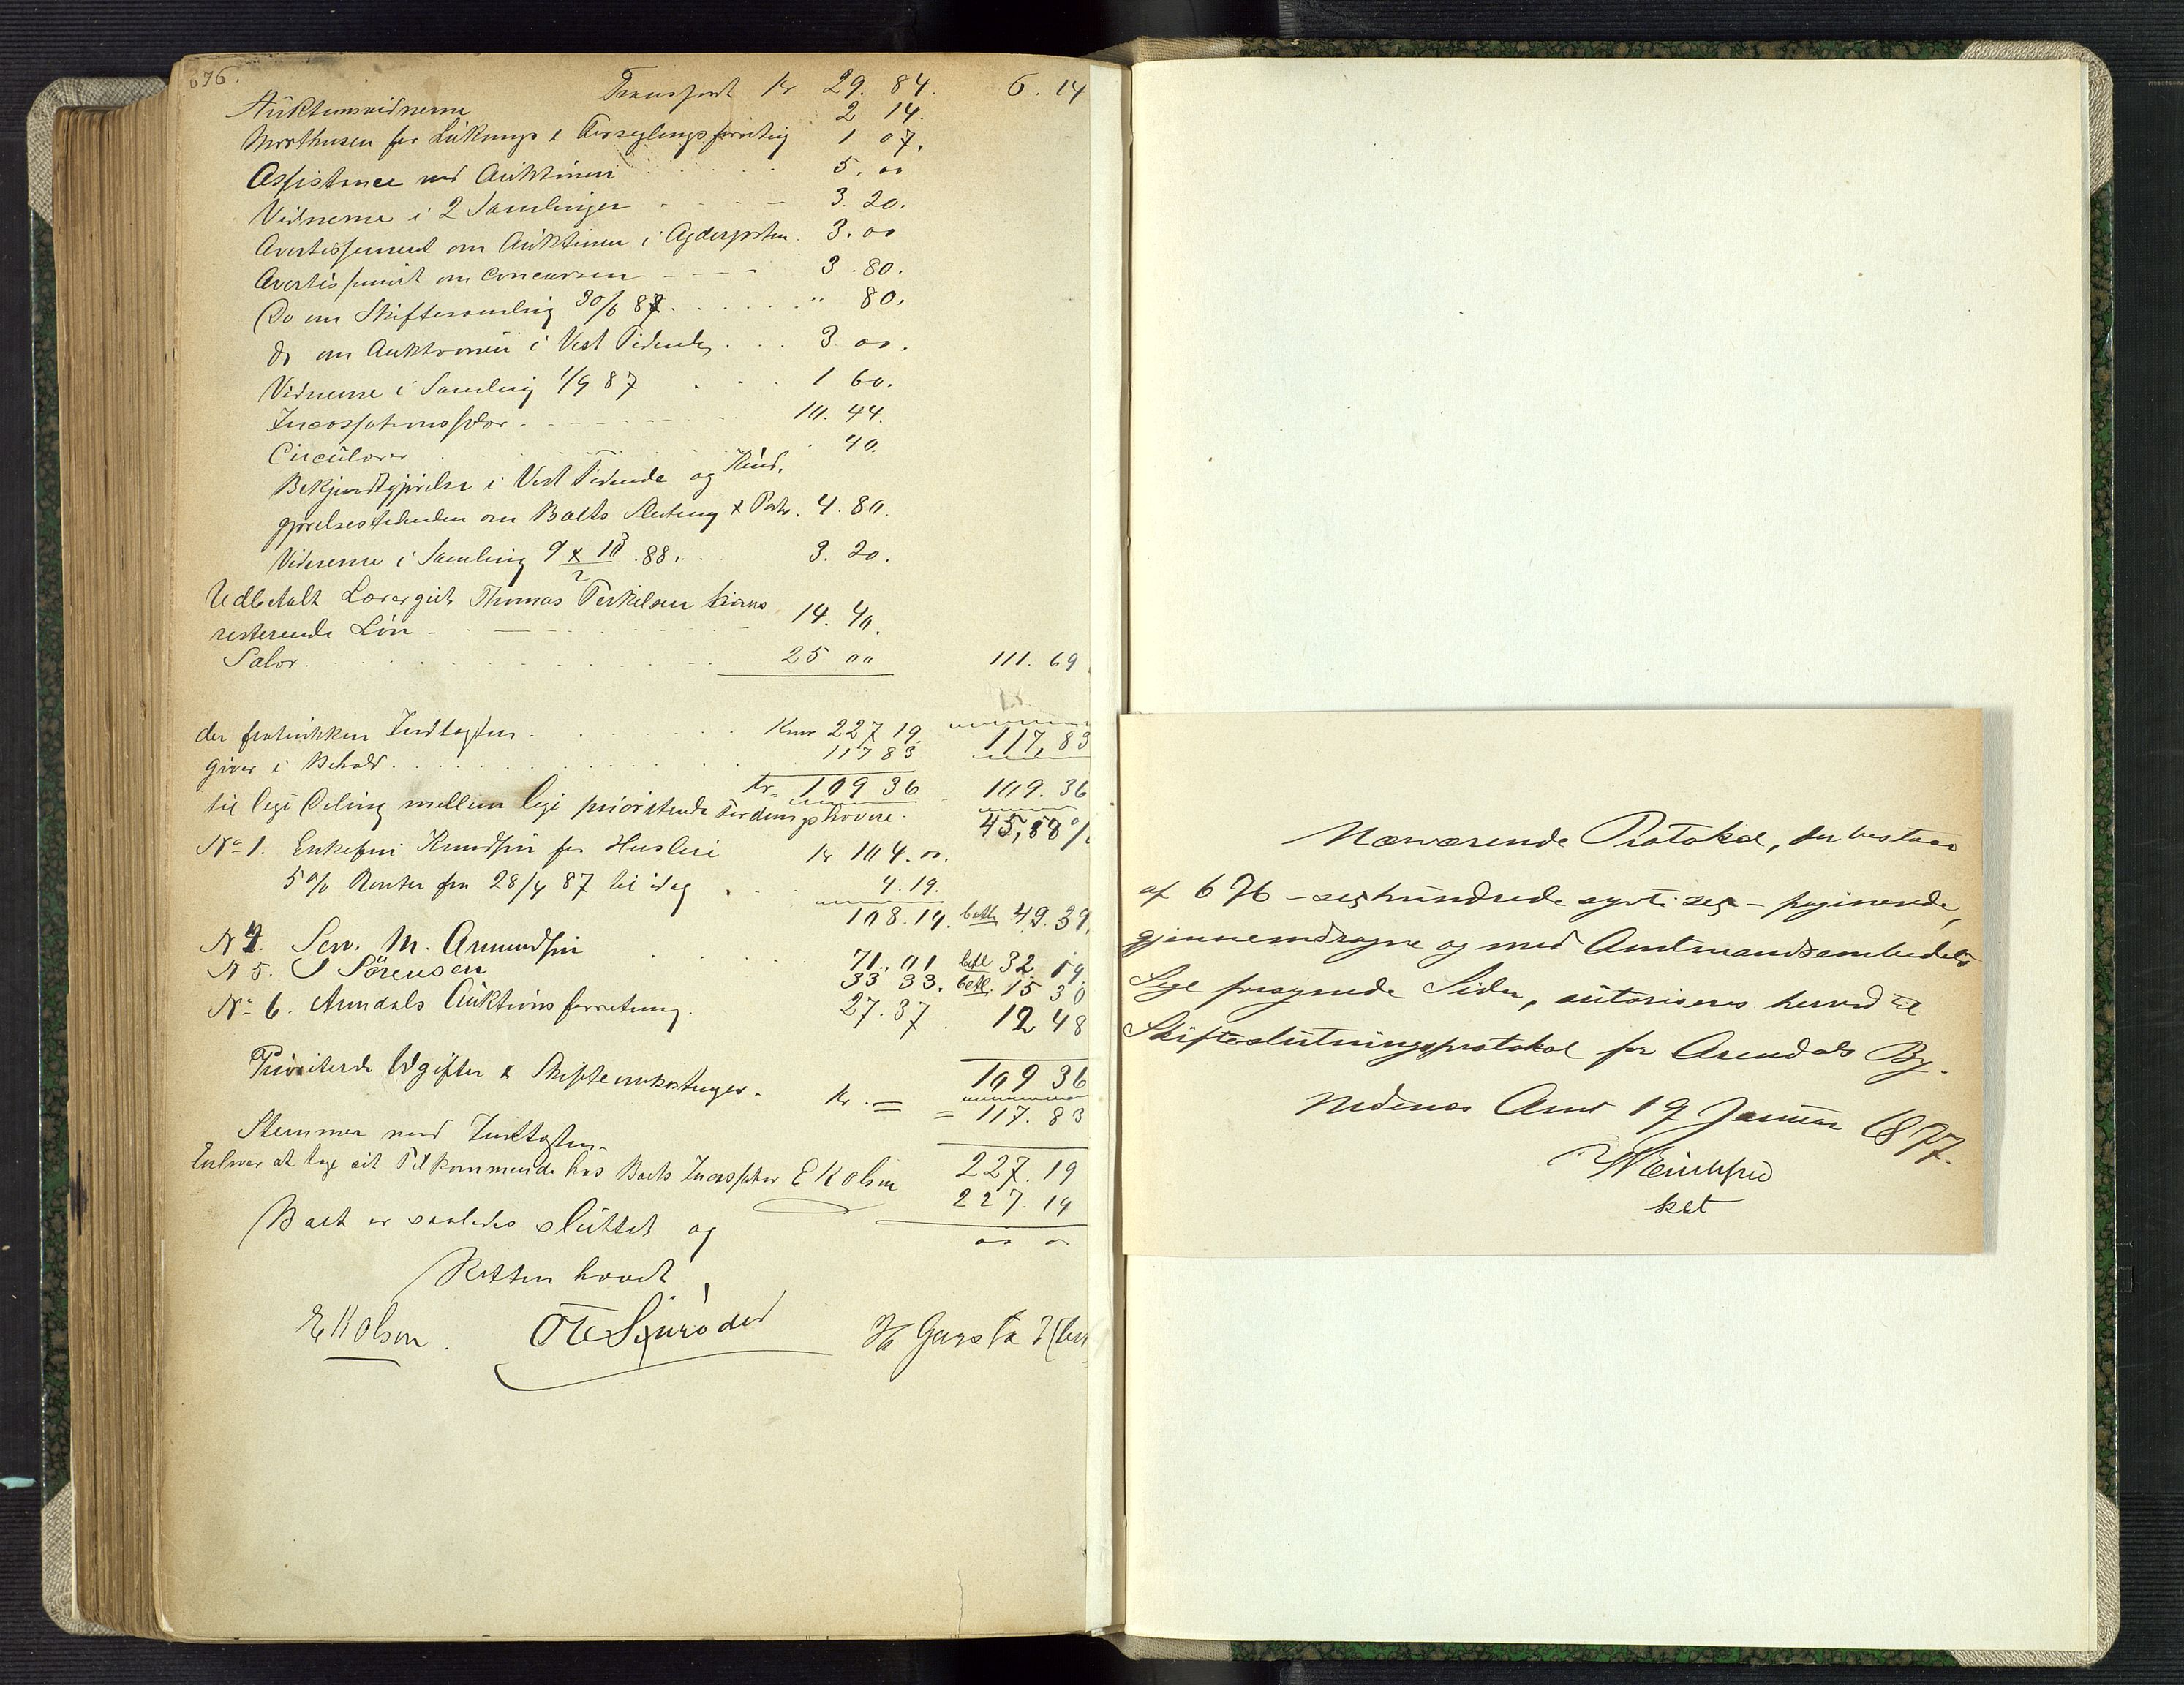 676.
Transport Kr 29. 84. 6. 14
Auktionsvidnerne 2 14.
Morthusen for Luknings & Forseglingsforretng 1 07.
Assistance ved Auktionen 5. 00
Vidnerne i 2 Samlinger 3. 20.
Avertissement om Auktionen i Agderposten. 3. 00
Avertissement om Concursen 3. 80.
Do om Skiftesamling 30/6 87. " 80.
do om Auktionen i Vest Tidende 3 00.
Vidnerne i Samling 1/9 87 1 60.
Incassationssalær 10. 44.
Circulærer 40.
Bekjendtgjørelse i Vest Tidende og Kund.
gjørelsestidenden om Boets Slutning & Porto. 4. 80.
Vidnerne i Samling 9 & 10/2 88. 3. 20.
Udbetalt Læregut Thomas Terkelsen hans
resterende Løn 14. 40.
Salær 25 00 111. 69
der fratrukken Indtægten Kroner 227 19. 117,83
giver i Behold 117 83
kr. 109 36 109. 36
til lige Deling mellem lige prioriterede Fordringshavere. 45,58%
No 1. Enkefru Knudsen for Husleie Kr 104. 00.
5 % Renter fra 28/4 87 til idag 4. 19.
108. 19. betl 49. 39.
N 4. Scr. M. Amundsen 71. 01 betl 32. 19.
N 5. S Sörensen 33 33. betl. 15 30
No 6. Arendals Auktionsforretning. 27. 37. 12 48
109 36
Prioriterede Udgifter & Skifteomkostninger. Kr. = = 117. 83
Stemmer med Indtægten 227. 19
Enhver at tage sit Tilkommende hos Boets Incassator E K Olsen 227. 19
Boet er saaledes sluttet og 00 00
Retten hævet.
E K Olsen.
Nærværende Protokol, der bestaaer
af 676 – sexhundrede sytti sex – paginerede,
gjennemdragne og med Amtmandsembedets
Segl forsynede Sider, autoriseres herved til
Skifteslutningsprotokol for Arendals By.
Nedenes Amt 19 Januar 1877.
kst